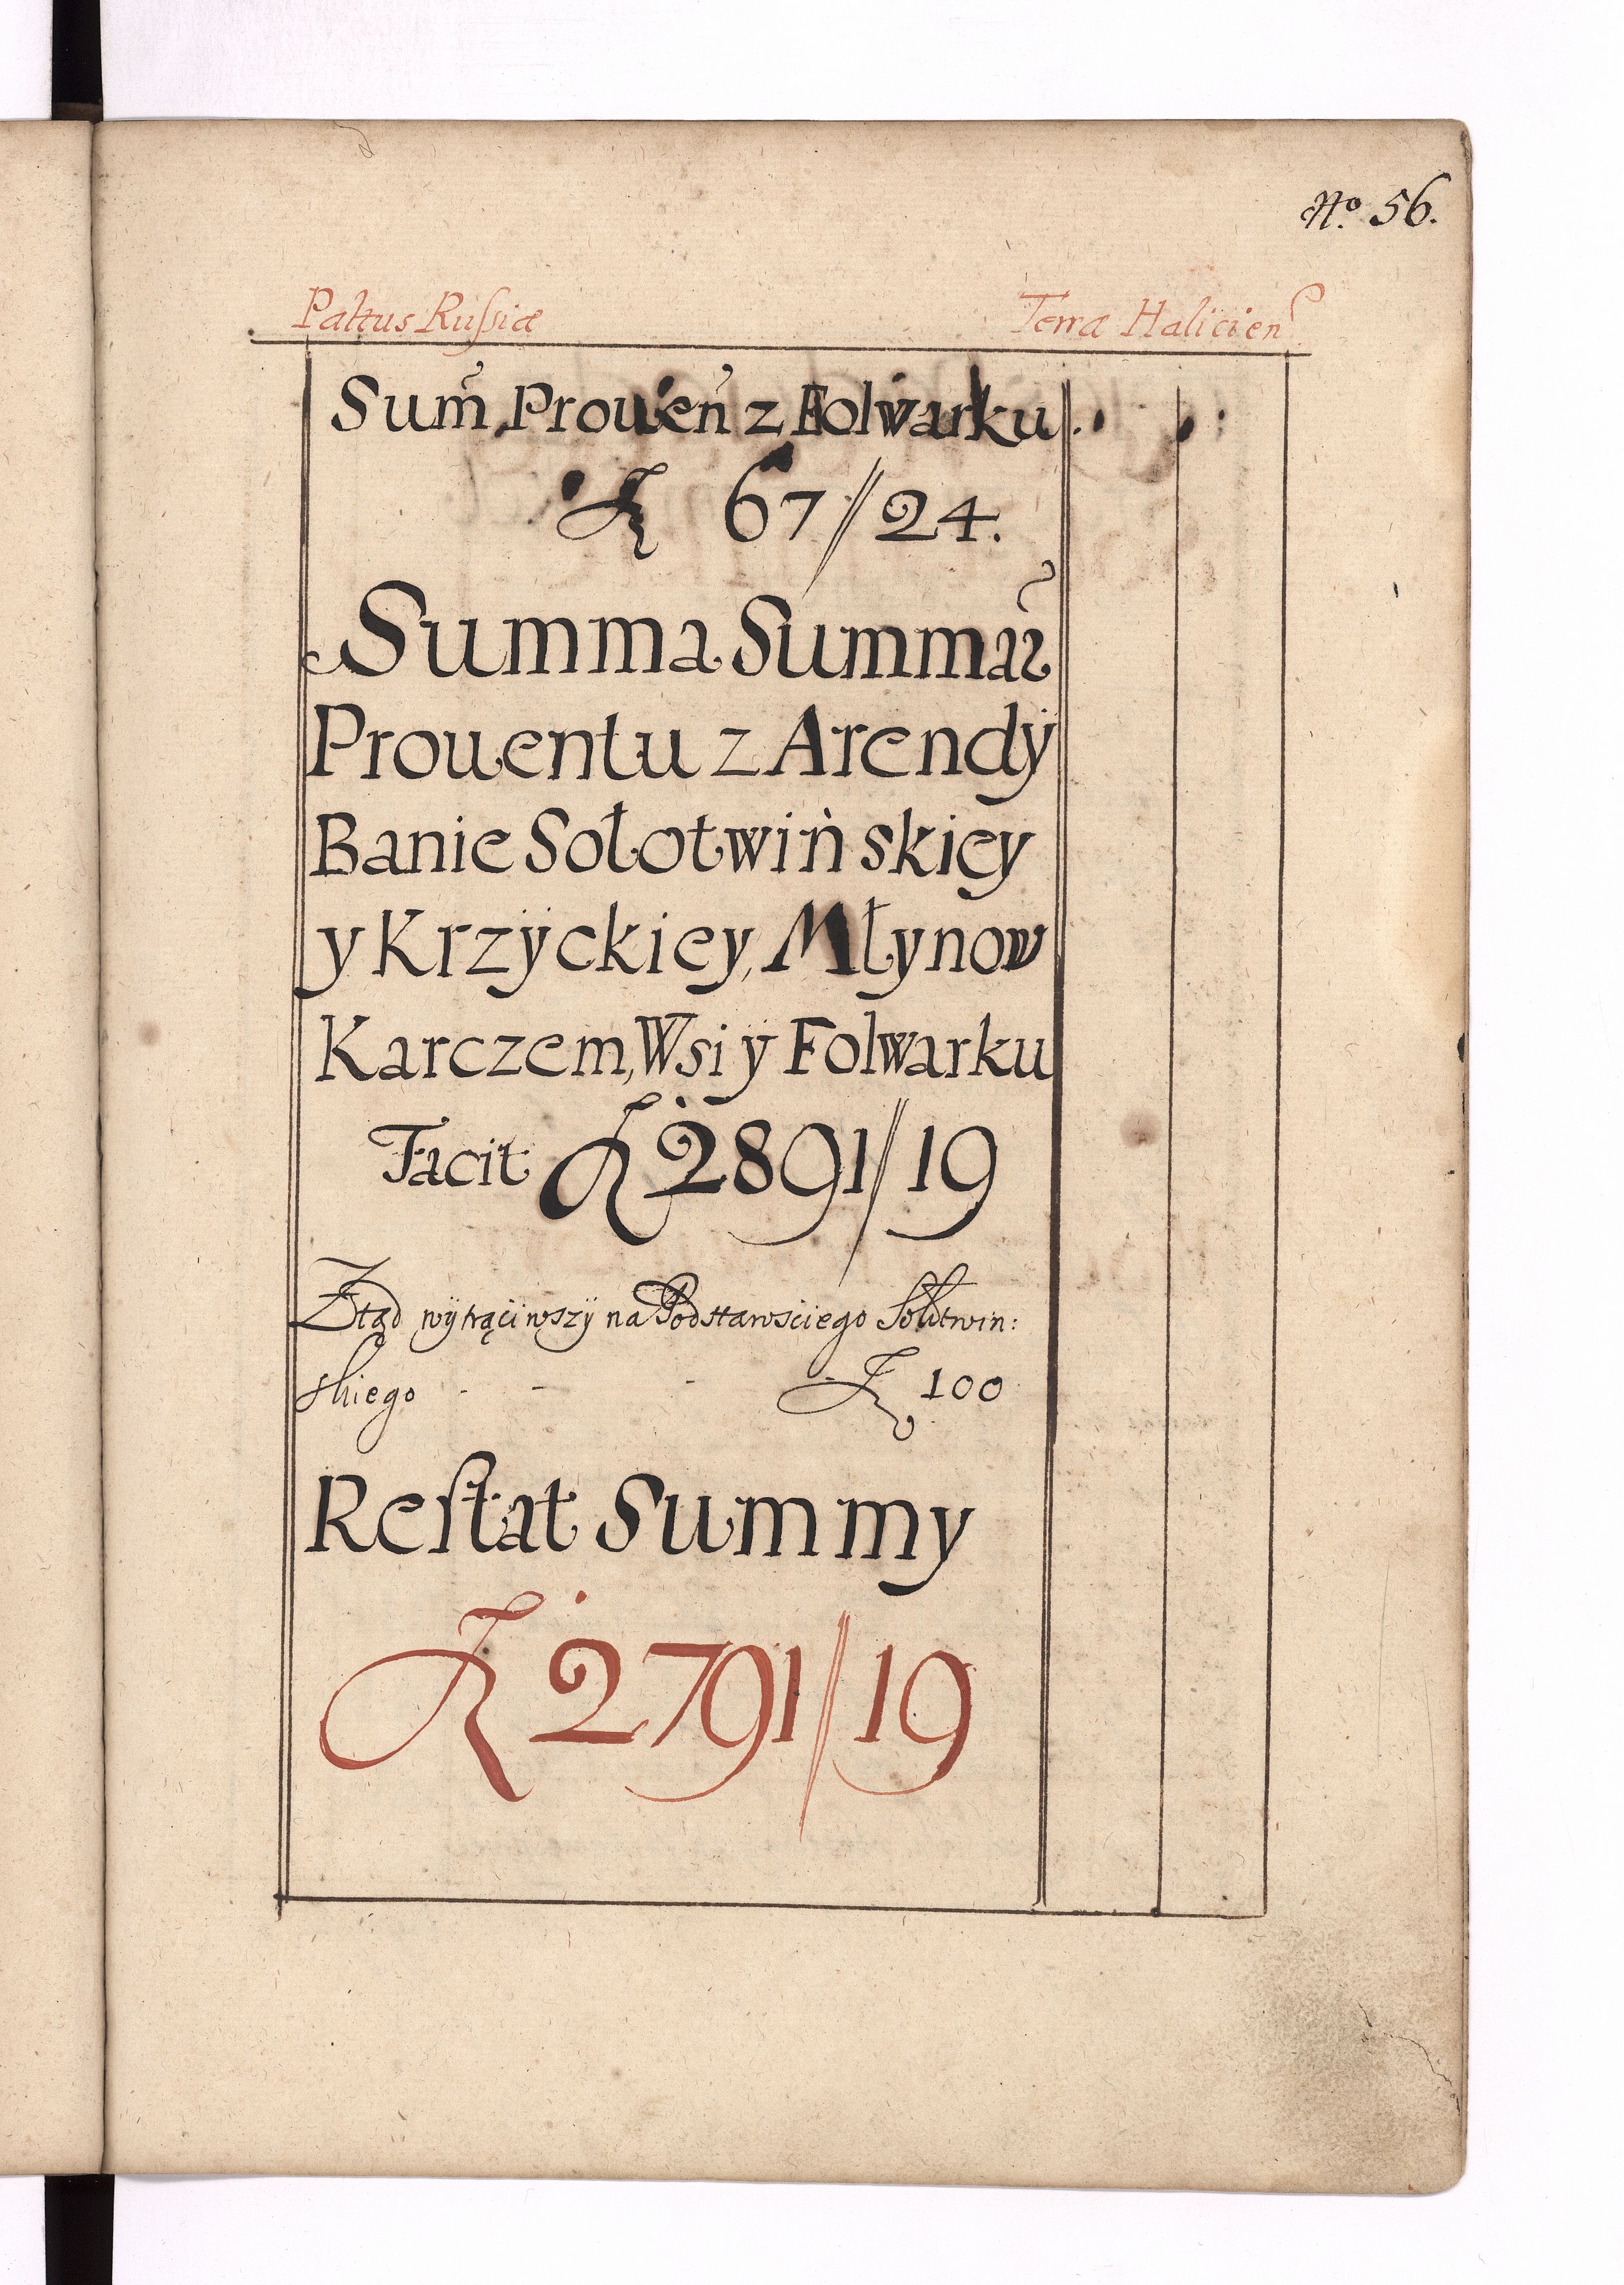 No. 56.
Paltus Russiæ Terra Halicien
Sum̃ Prouen̉ z Folwarku
fl 67//24.
Summa Summaꝝ
Prouentu z Arendÿ
Banie Sołotwińskiey
y Krzÿckiey, Młynow
Karczem, Wsi ÿ Folwarku
Facit fl 2891//19
Ztąd wÿtrąciwszÿ na Podstarosciego Sołotwin:
skiego - - - fl 100
Restat Summy
fl 2791//19